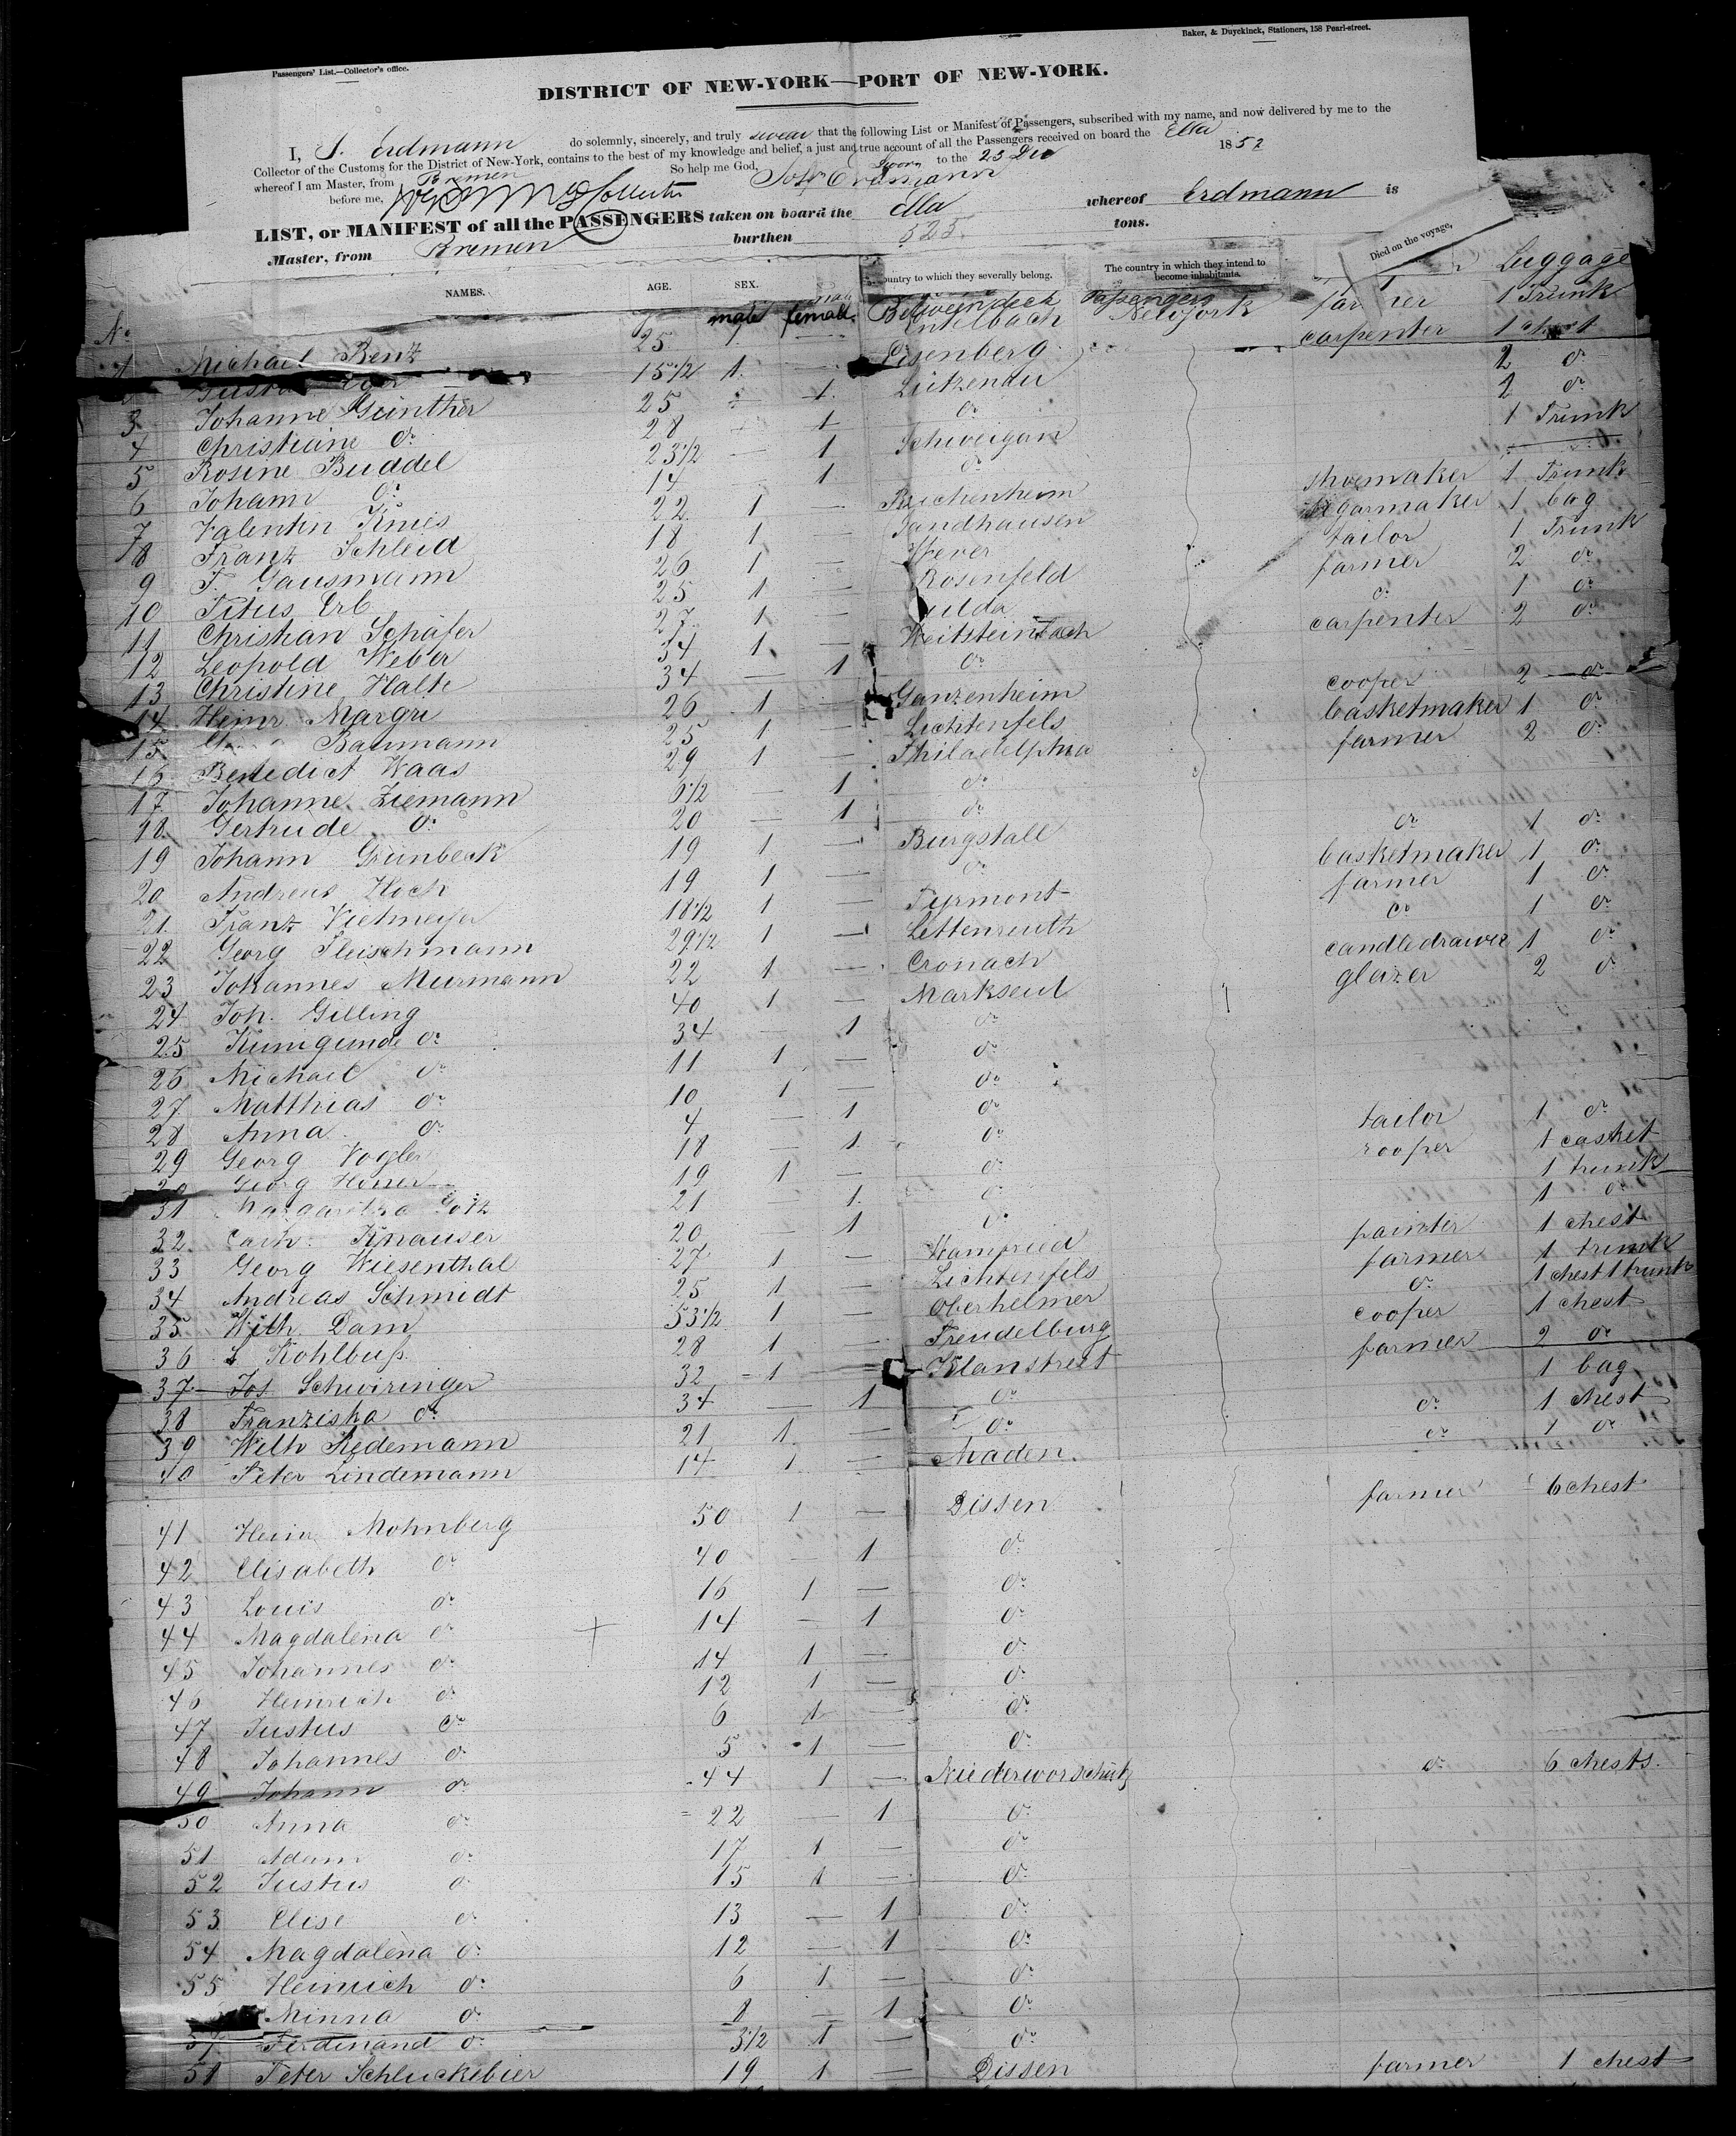 Passengers' List.—Collector's office.
Baker, & Duyckinck, Stationers, 158 Pearl-street.
DISTRICT OF NEW-YORK—PORT OF NEW-YORK.
I, J. Erdmann do solemnly, sincerely, and truly swear that the following List or Manifest of Passengers, subscribed with my name, and now delivered by me to the
Collector of the Customs for the District of New-York, contains to the best of my knowledge and belief, a just and true account of all the Passengers received on board the Ella
whereof I am Master, from Bremen So help me God. Sworn to the 23 Dec 1852
before me, Erdmann
LIST, or MANIFEST of all the PASSENGERS taken on board the Ella whereof Erdmann is
Master, from Bremen burthen 525 tons.
NAMES. AGE. SEX. Country to which they severally belong. The country in which they intend to become inhabitants. Died on the voyage, Luggage
No male female Betweendeck Passengers
1 Michael Benz 25 1 — NewYork farmer 1 Trunk
Gustav 15 1/2 1 — Eisenberg carpenter 1 chest
3 Johanne Günther 25 — 1 2 do
4 Christiane do 28 — 1 do 2 do
5 Rosine Buddel 23 1/2 — 1 1 Trunk
6 Johann do 14 1 do
7 Valentin Knies 22 1 — shoemaker 1 Trunk
8 Franz Schleid 18 1 — Sandhausen segarmaker 1 bag
9 F. Gausmann 26 1 — Wever tailor 1 Trunk
10 Titus Erb 25 1 — Rosenfeld farmer 2 do
11 Christian Schäfer 27 1 — do 1 do
12 Leopold Weber 34 1 — carpenter 2 do
13 Christine Halte 34 — 1 do
14 Heinr. Margru 26 1 — Ganzenheim cooper 2 do
15 Baumann 25 1 — Lichtenfels basketmaker 1 do
16 Benedict Waas 29 1 — Philadelphia farmer 2 do
17 Johanne Ziemann 6 1/2 — 1 do
18 Gertrude do 20 — 1 do
19 Johann Grünbeck 19 1 — Burgstall do 1 do
20 Andreas Hoch 19 1 — do basketmaker 1 do
21 Franz Vietmeyer 18 1/2 1 — Pyrmont farmer 1 do
22 Georg Fleischmann 29 1/2 1 — Lettenreuth do 1 do
23 Johannes Murmann 22 1 — Cronach candledrawer 1 do
24 Joh. Gilling 40 1 — Markseul glazer 2 do
25 Kunigunde do 34 — 1 do
26 Michael do 11 1 — do
27 Matthias do 10 1 — do
28 Anna do 4 — 1 do
29 Georg Vogler 18 — 1 do tailor 1 do
30 Georg 19 1 — do cooper 1 casket
31 Margaretha Götz 21 — 1 do 1 trunk
32 Cath. Knauser 20 — 1 do 1 do
33 Georg Wiesenthal 27 1 — Wanfried painter 1 chest
34 Andreas Schmidt 25 1 — Lichtenfels farmer 1 trunk
35 Wilh. Dam 53 1/2 1 — Oberhelmer do 1 chest 1 trunk
36 L Kohlbuß 28 1 — Trendelburg cooper 1 chest
37 Jos. Schwiringer 32 1 — Klanstreet farmer 2 do
38 Franziska do 34 — 1 do 1 bag
39 Wilh Redemann 21 1 — do do 1 chest
40 Peter Lindemann 14 1 — Maden do 1 do
41 Heinr. Mohnberg 50 1 — Dissen farmer 6 chest
42 Elisabeth do 40 — 1 do
43 Louis do 16 1 — do
44 Magdalena do 14 — 1 do
45 Johannes do 14 1 — do
46 Heinrich do 12 1 — do
47 Justus do 6 1 — do
48 Johannes do 5 1 — do
49 Johann do 44 1 — Niederworschütz do 6 chests.
50 Anna do 22 — 1 do
51 Adam do 17 1 — do
52 Justus do 15 1 — do
53 Elise do 13 — 1 do
54 Magdalena do 12 — 1 do
55 Heinrich do 6 1 — do
Minna do 8 — 1 do
57 Ferdinand do 3 1/2 1 — do
58 Peter Schluckebier 19 1 — Dissen farmer 1 chest